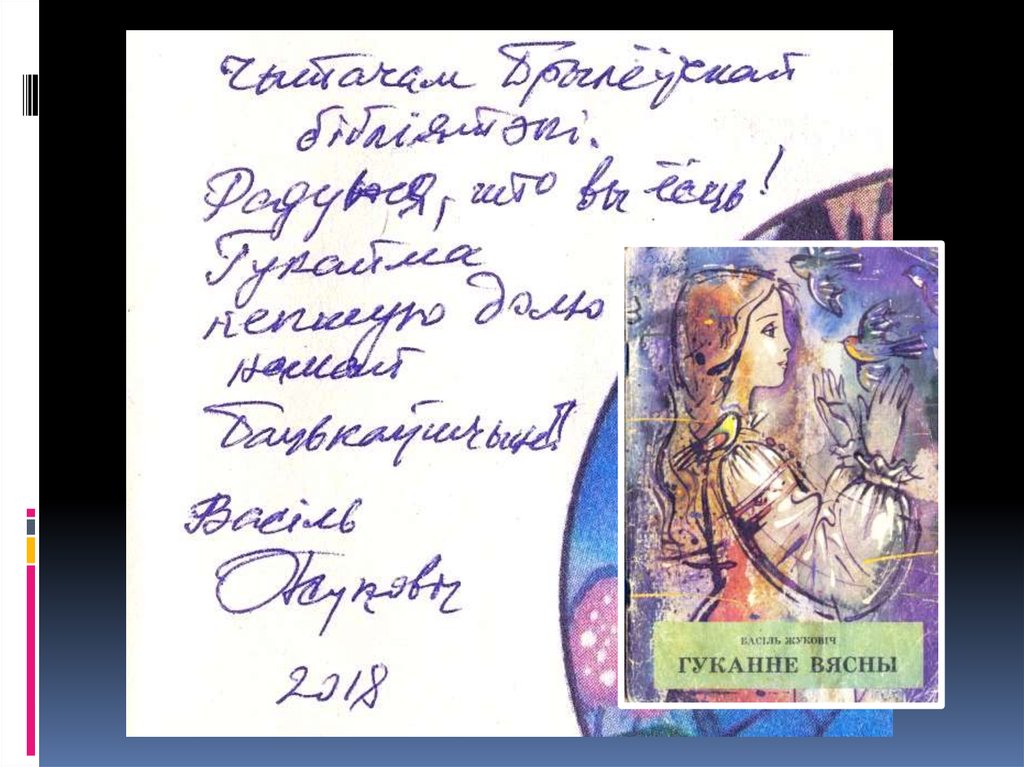 Чытачам Брылёўскай
бібліятэкі.
Радуюся, што вы ёсць!
Гукайма
лепшую долю
нашай
Бацькаўшчыне!
Васіль
Жуковіч
2018
ВАСІЛЬ ЖУКОВІЧ
ГУКАННЕ ВЯСНЫ